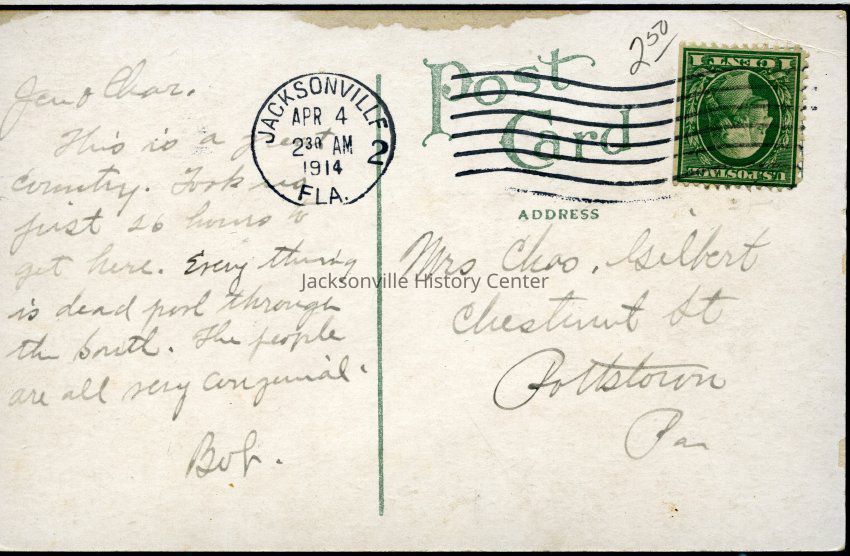 Jen & Char.
This is a great
Country. Took us
just 26 hours to
get here. Every thing
is dead poor through
the South. The people
are all very congenial.
Bob.
JACKSONVILLE
APR 4
2 30 AM
1914
FLA.
2
Post
Card
2 50
1 CENT 1
U.S. POSTAGE
ADDRESS
Mrs Chas. Gilbert
Chestnut St
Pottstown
Pa
Jacksonville History Center